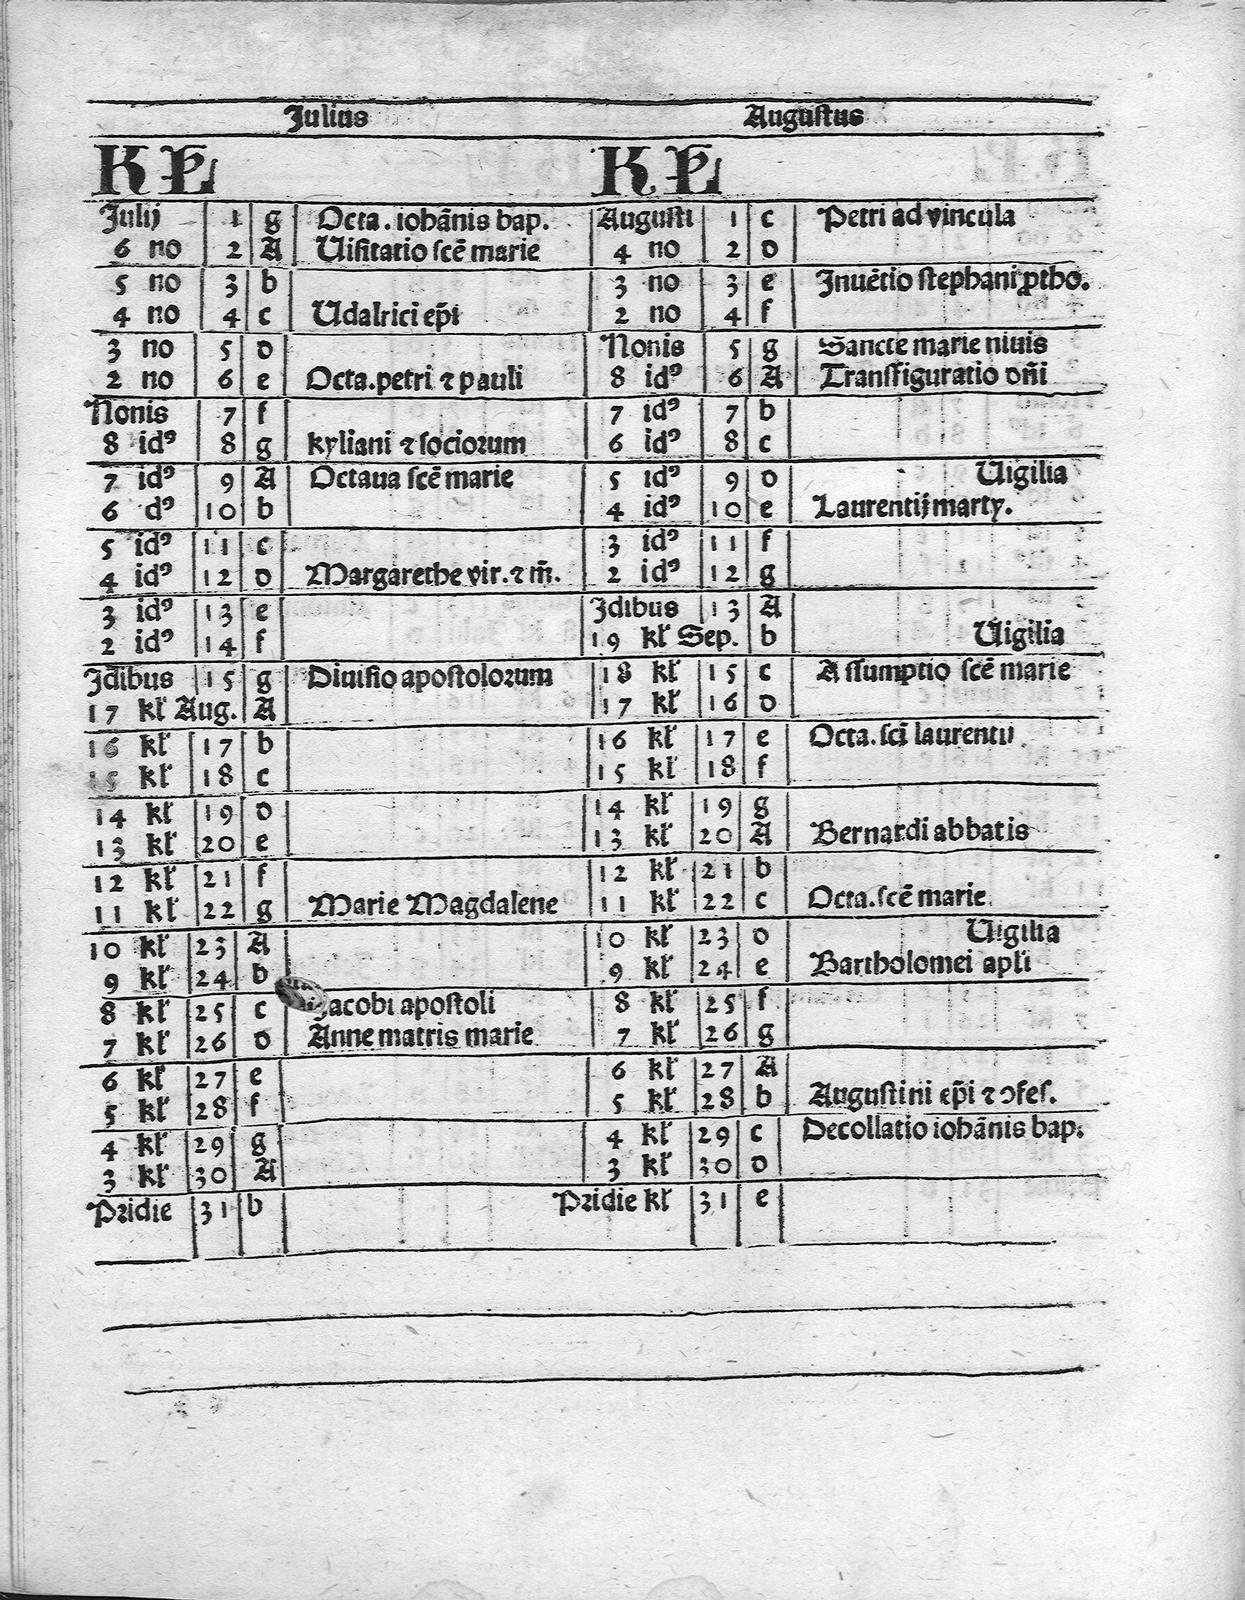 Julius Augustus
KL KL
Julij 1 g Octa. iohānis bap. Augusti 1 c Petri ad vincula
6 no 2 A Uisitatio scē marie 4 no 2 d
5 no 3 b 3 no 3 e Inuētio stephani ꝓtho.
4 no 4 c Udalrici ep̄i 2 no 4 f
3 no 5 d Nonis 5 g Sancte marie niuis
2 no 6 e Octa. petri ⁊ pauli 8 idꝰ 6 A Transfiguratio dn̄i
Nonis 7 f 7 idꝰ 7 b
8 idꝰ 8 g kyliani ⁊ sociorum 6 idꝰ 8 c
7 idꝰ 9 A Octaua scē marie 5 idꝰ 9 d Uigilia
6 dꝰ 10 b 4 idꝰ 10 e Laurentij marty.
5 idꝰ 11 c 3 idꝰ 11 f
4 idꝰ 12 d Margarethe vir. ⁊ m̄. 2 idꝰ 12 g
3 idꝰ 13 e Idibus 13 A
2 idꝰ 14 f 19 kl' Sep. b Uigilia
Idibus 15 g Diuisio apostolorum 18 kl' 15 c Assumptio scē marie
17 kl' Aug. A 17 kl' 16 d
16 kl' 17 b 16 kl' 17 e Octa. scī laurentij
15 kl' 18 c 15 kl' 18 f
14 kl' 19 d 14 kl' 19 g
13 kl' 20 e 13 kl' 20 A Bernardi abbatis
12 kl' 21 f 12 kl' 21 b
11 kl' 22 g Marie Magdalene 11 kl' 22 c Octa. scē marie
10 kl' 23 A 10 kl' 23 d Uigilia
9 kl' 24 b 9 kl' 24 e Bartholomei apl'i
8 kl' 25 c Jacobi apostoli 8 kl' 25 f
7 kl' 26 d Anne matris marie 7 kl' 26 g
6 kl' 27 e 6 kl' 27 A
5 kl' 28 f 5 kl' 28 b Augustini ep̄i ⁊ ↄfes.
4 kl' 29 g 4 kl' 29 c Decollatio iohānis bap.
3 kl' 30 A 3 kl' 30 d
Pridie 31 b Pridie kl' 31 e